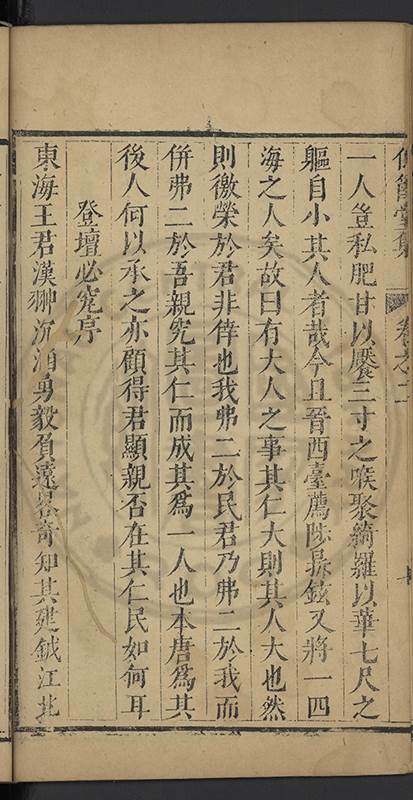 一人豈私肥甘以饜三寸之喉聚綺羅以華七尺之
軀自小其人者哉今且晉西臺薦陟鼎鉉又將一四
海之人矣故曰有大人之事其仁大則其人大也然
則徼榮於君非倖也我弗二於民君乃弗二於我而
併弗二於吾親究其仁而成其爲一人也本唐爲其
後人何以承之亦顧得君顯親否在其仁民如何耳
登壇必究序
東海王君漢翀沉泊勇毅負遠畧奇知其建鉞江北